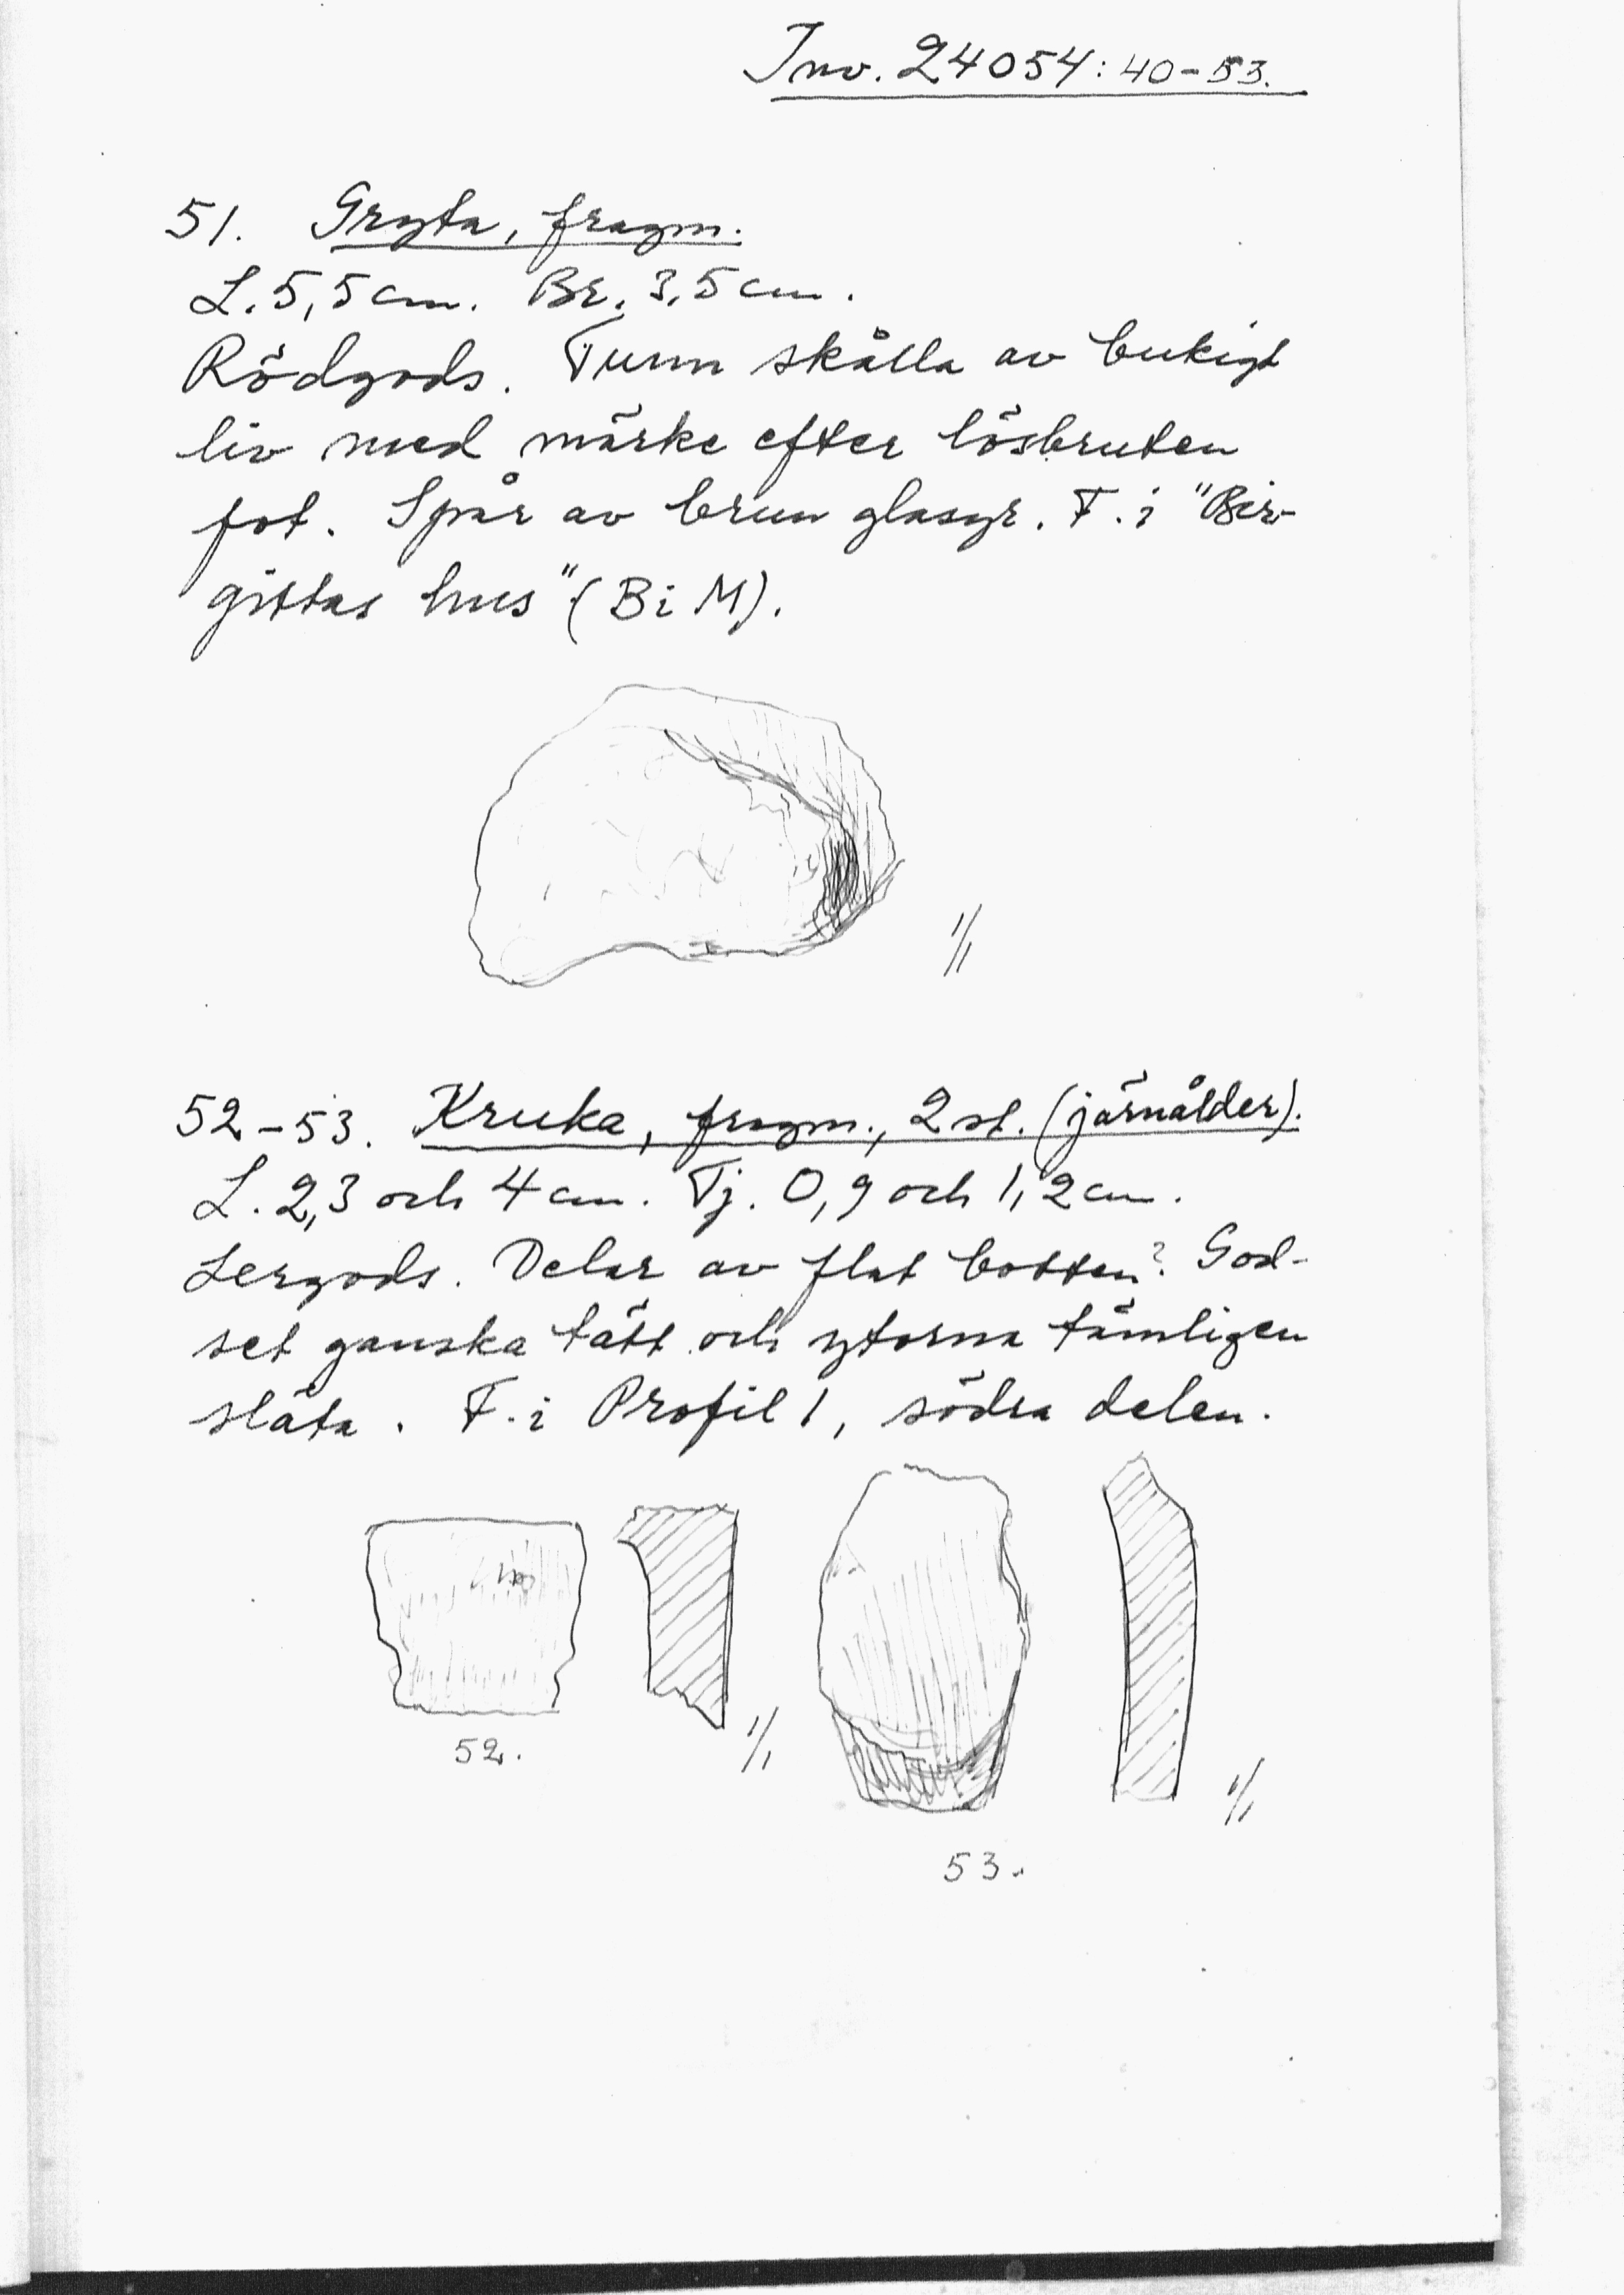 Inv. 24054: 40-53.
51. Gryta, fragm.
L. 5,5 cm. Br. 3,5 cm.
Rödgods. Tunn skålla av bukigt
liv med märke efter lösbruten
fot. Spår av brun glasyr. F. i "Bir-
gittas hus" (Bi M).
1/1
52-53. Kruka, fragm., 2 st. (järnålder).
L. 2,3 och 4 cm. Tj. 0,9 och 1,2 cm.
Lergods. Delar av flat botten? God-
set ganska tätt och ytorna tämligen
släta. F. i Profil 1, södra delen.
1/1
52.
1/1
53.